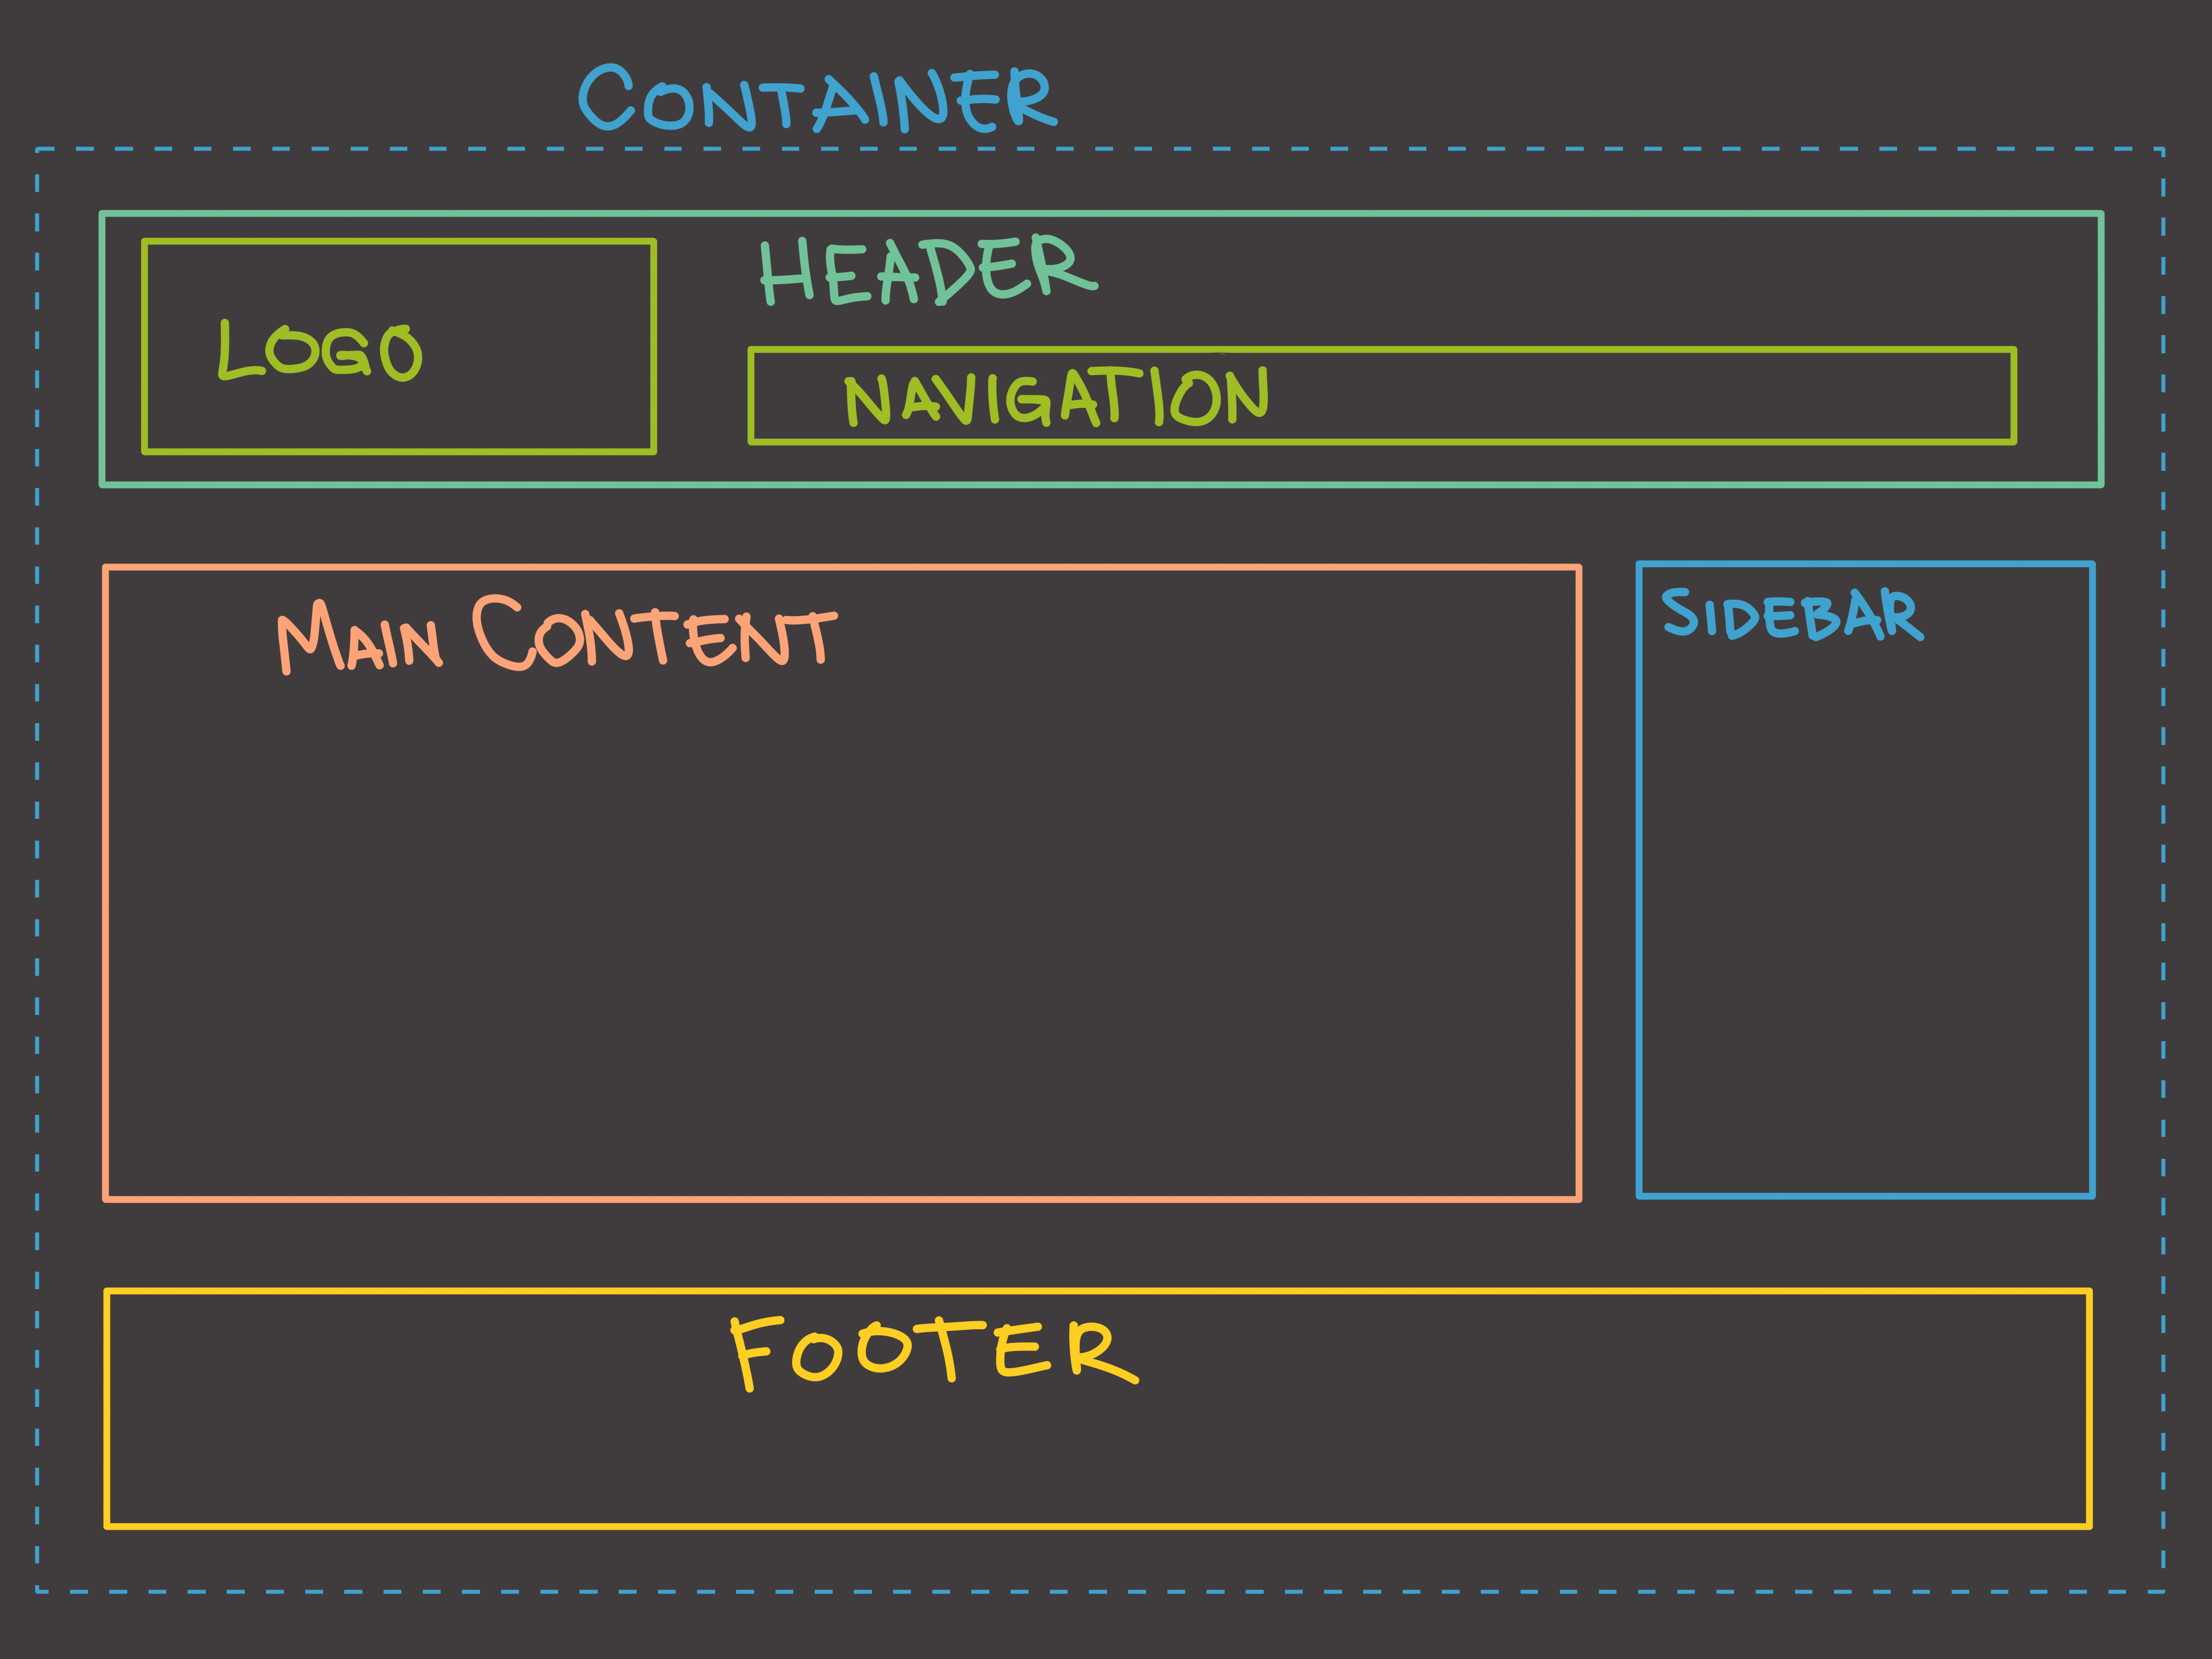 CONTAINER
HEADER
LOGO
NAVIGATION
MAIN CONTENT
SIDEBAR
FOOTER